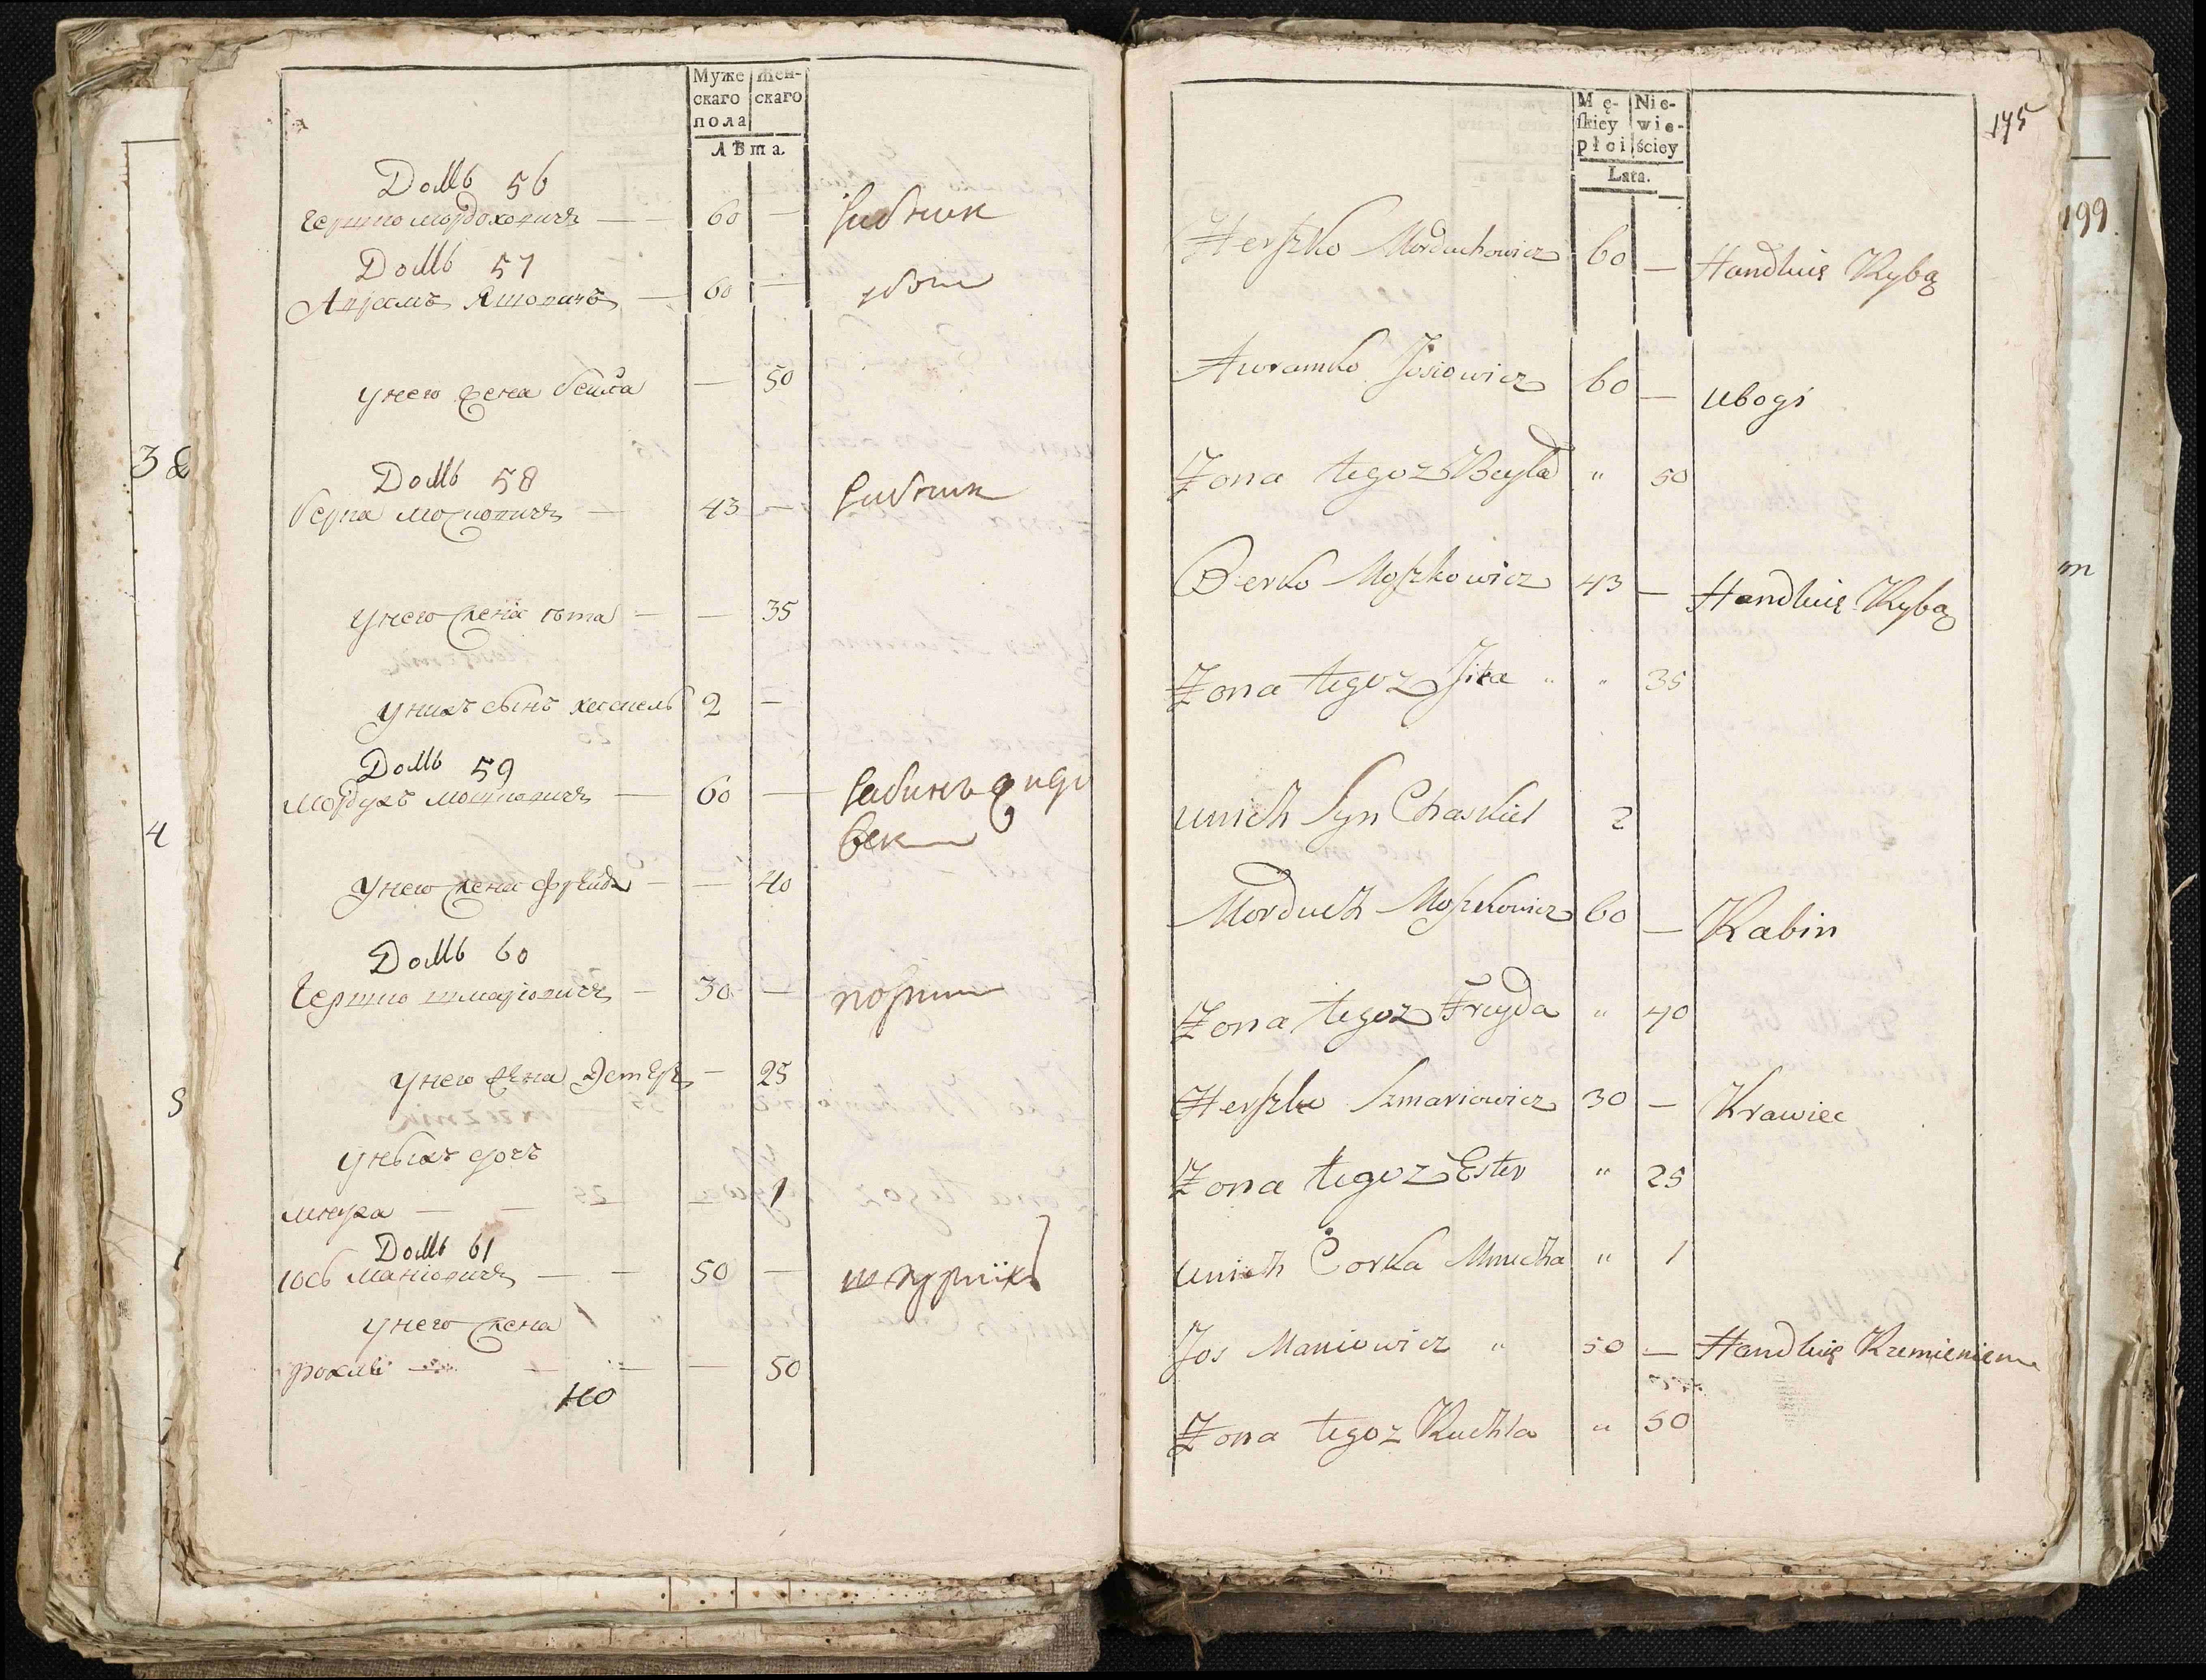 Муже
скаго
пола
Жен-
скаго
Лѣта.
Домъ 56
Гершко Мордоховичъ — 60 — рибник
Домъ 57
Аврамъ Яшовичъ — 60 —
У него жена Бейла — 50
Домъ 58
Берка Мошковичъ — 43 — рибник
У него жена — — 35
У нихъ сынъ Хескель 2 —
Домъ 59
Мордухъ Мошковичъ — 60 — рабинъ
У него жена Фрейда — — 40
Домъ 60
Гершко Шмаріовичъ — 30 —
У него жена Эстеръ — 25
У ныхъ дочь
Мнуха — — — — 1
Домъ 61
Іось Маніовичъ — — 50 —
У него жена
Рохля — — — — 50
110
Mę-
ſkiey
płci
Nie-
wie-
ściey
Lata.
175
Herſzko Morduchowicz 60 — Handluię Rybą
Awramko Josiowicz 60 — Ubogi
Zona tegoz Beyla " 50
Berko Moſzkowicz 43 — Handluię Rybą
Zona tegoz Jita " " 35
unich Syn Chaskiel 2
Morduch Moſzkowicz 60 — Rabin
Zona tegoz Freyda " 40
Herſzko Szmariowicz 30 — Krawiec
Zona tegoz Ester " 25
unich Corka Mnucha " 1
Jos Maniowicz " 50 — Handluię Krzemieniem
Zona tegoz Ruchla " 50
38
4
5
199
m